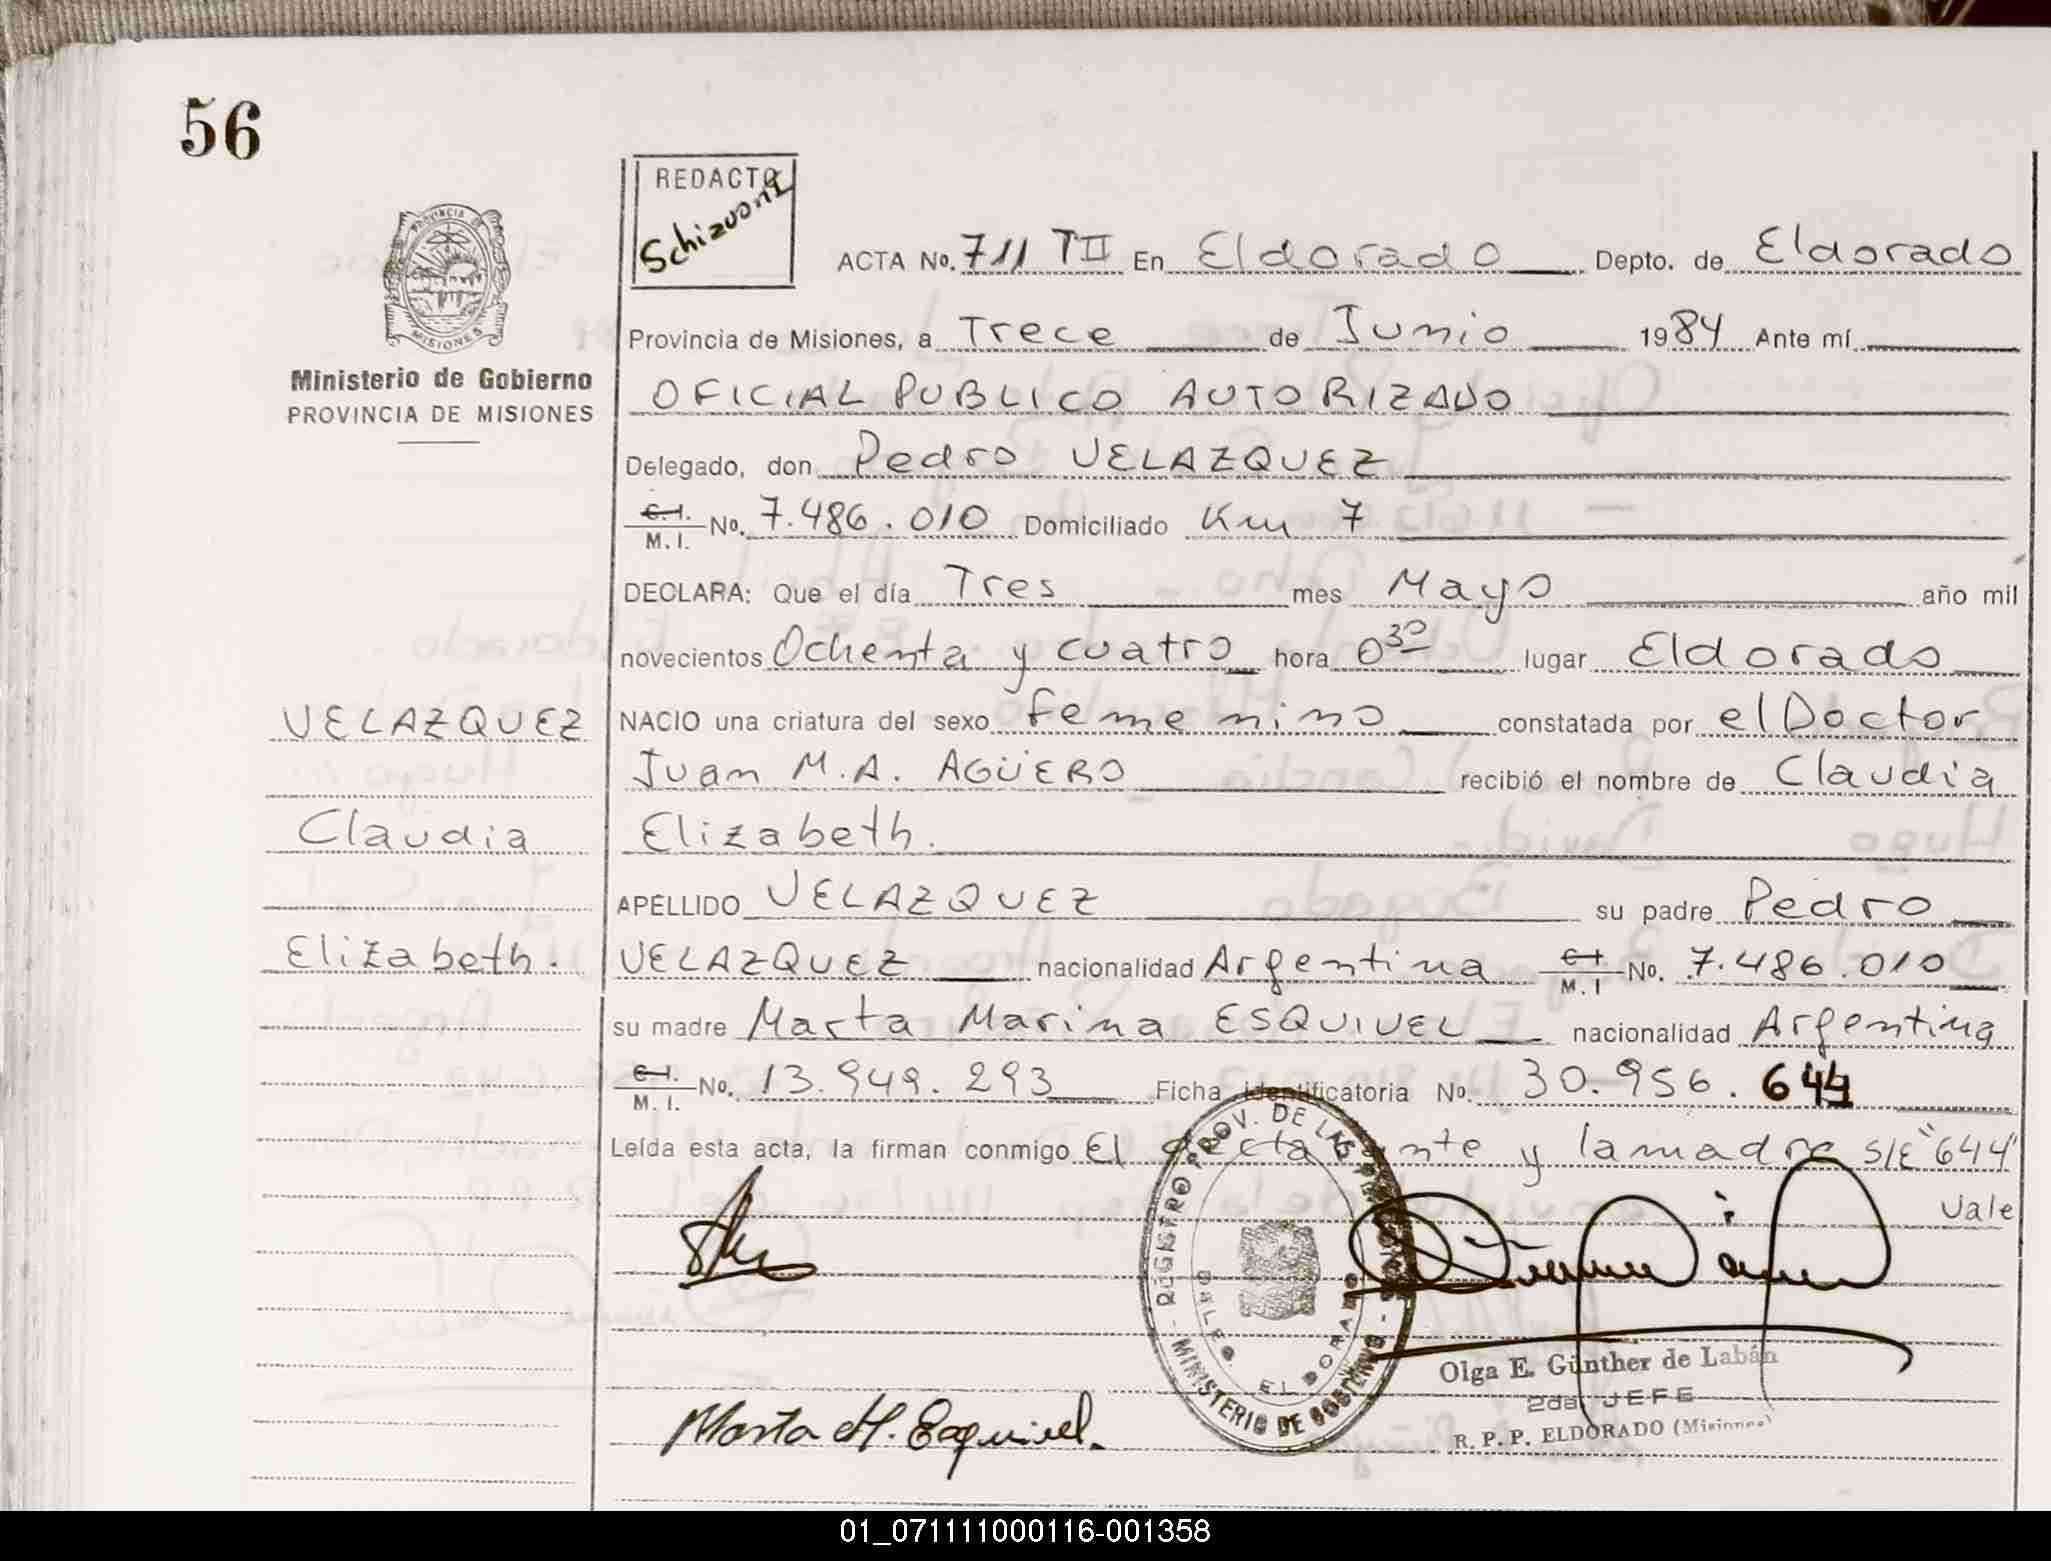 56
REDACTO
Schiavoni
PROVINCIA DE
MISIONES
Ministerio de Gobierno
PROVINCIA DE MISIONES
ACTA No. 711 TII En Eldorado Depto. de Eldorado
Provincia de Misiones, a Trece de Junio 1984 Ante mí
OFICIAL PUBLICO AUTORIZADO
Delegado, don Pedro VELAZQUEZ
C.I. M.I. No. 7.486.010 Domiciliado Km 7
DECLARA: Que el día Tres mes Mayo año mil
novecientos Ochenta y cuatro hora 0 30 lugar Eldorado
VELAZQUEZ NACIO una criatura del sexo femenino constatada por el Doctor
Juan M.A. AGÜERO recibió el nombre de Claudia
Claudia Elizabeth.
APELLIDO VELAZQUEZ su padre Pedro
Elizabeth. VELAZQUEZ nacionalidad Argentina C.I. M.I No. 7.486.010
su madre Marta Marina ESQUIVEL nacionalidad Argentina
C.I. M.I. No. 13.949.293 Ficha identificatoria No. 30.956.644
Leída esta acta, la firman conmigo El declarante y la madre S/E "644"
Vale
REGISTRO PROV. DE LAS PERSONAS - MINISTERIO DE GOBIERNO -
ELDORADO
Marta M. Esquivel.
Olga E. Günther de Labán
2da. JEFE
R. P. P. ELDORADO (Misiones)
01_071111000116-001358